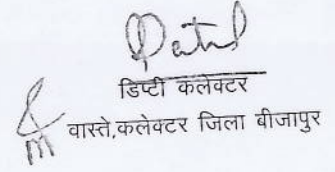 डिप्टी कलेक्टर
वास्ते,कलेक्टर जिला बीजापुर